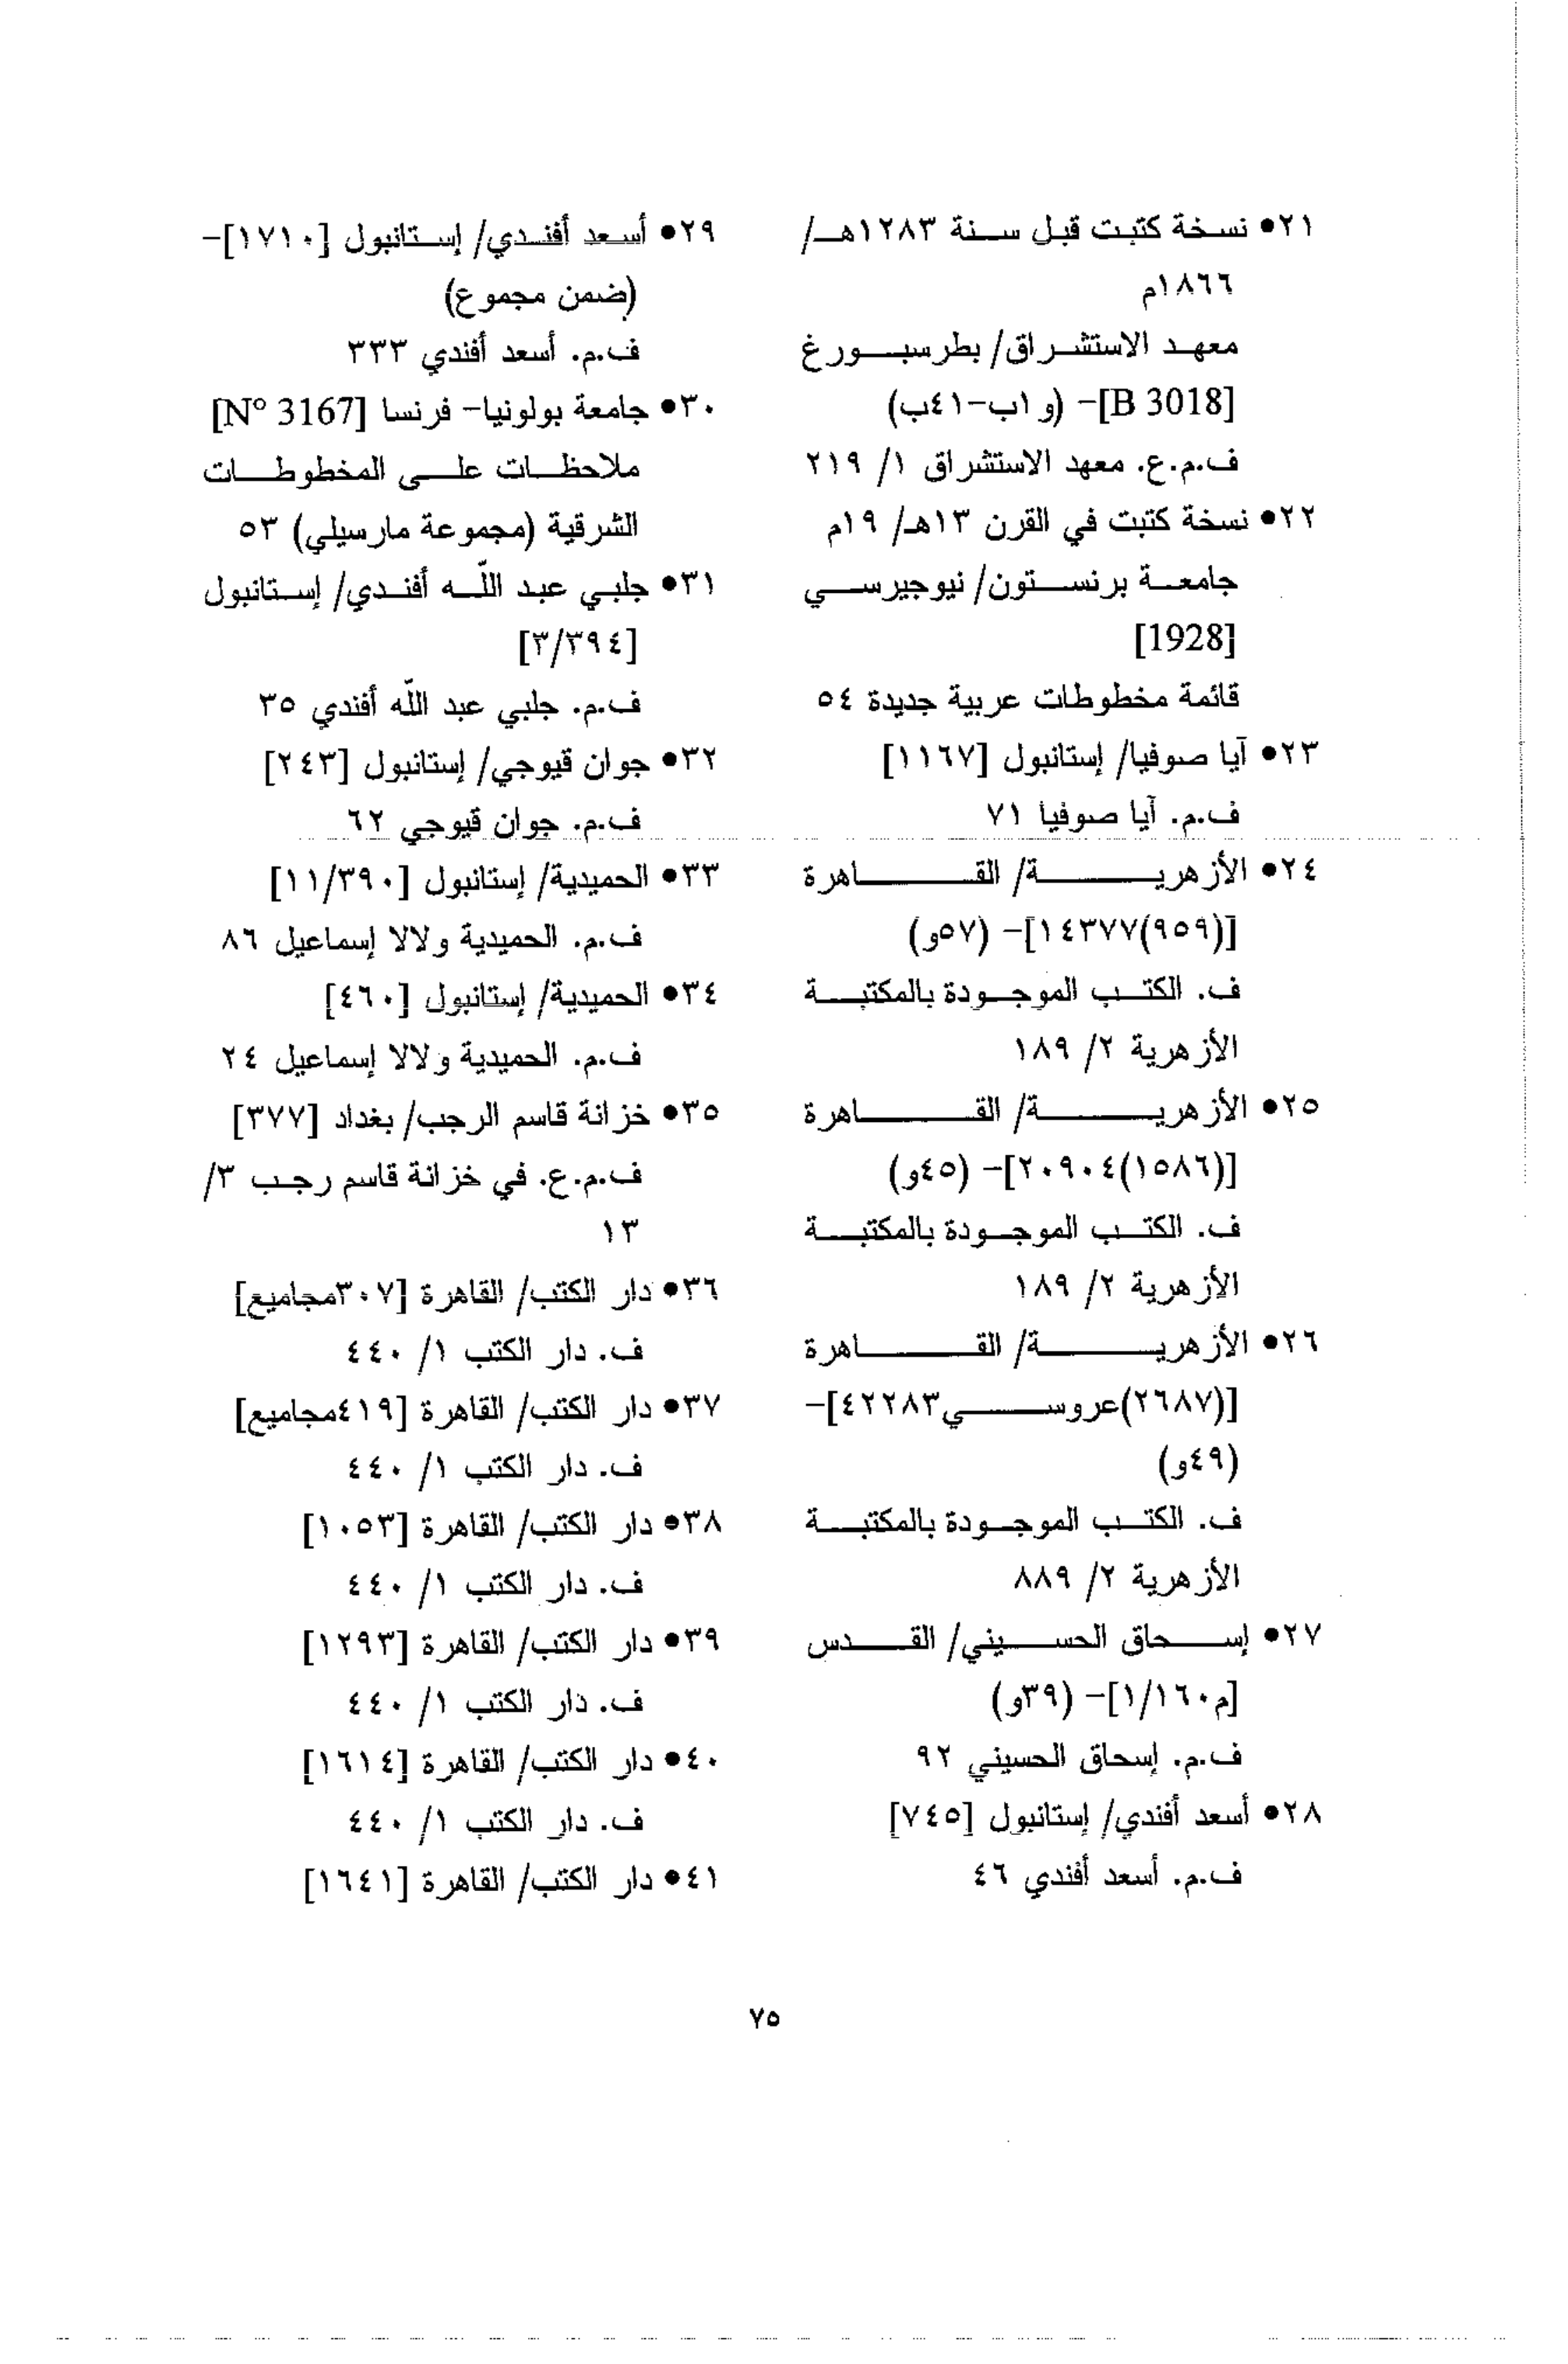 ٢١• نسخة كتبت قبل سنة ١٢٨٣هـ/
١٨٦٦م
معهد الاستشراق/ بطرسبورغ
[B 3018]- (و١ب-٤١ب)
ف.م.ع. معهد الاستشراق ١/ ٢١٩
٢٢• نسخة كتبت في القرن ١٣هـ/ ١٩م
جامعة برنستون/ نيوجيرسي
[1928]
قائمة مخطوطات عربية جديدة ٥٤
٢٣• آيا صوفيا/ إستانبول [١١٦٧]
ف.م. آيا صوفيا ٧١
٢٤• الأزهرية/ القاهرة
[(٩٥٩)١٤٣٧٧]- (٥٧و)
ف. الكتب الموجودة بالمكتبة
الأزهرية ٢/ ١٨٩
٢٥• الأزهرية/ القاهرة
[(١٥٨٦)٢٠٩٠٤]- (٤٥و)
ف. الكتب الموجودة بالمكتبة
الأزهرية ٢/ ١٨٩
٢٦• الأزهرية/ القاهرة
[(٢٦٨٧)عروسي٤٢٢٨٣]-
(٤٩و)
ف. الكتب الموجودة بالمكتبة
الأزهرية ٢/ ٨٨٩
٢٧• إسحاق الحسيني/ القدس
[م١/١٦٠]- (٣٩و)
ف.م. إسحاق الحسيني ٩٢
٢٨• أسعد أفندي/ إستانبول [٧٤٥]
ف.م. أسعد أفندي ٤٦
٢٩• أسعد أفندي/ إستانبول [١٧١٠]-
(ضمن مجموع)
ف.م. أسعد أفندي ٣٣٣
٣٠• جامعة بولونيا- فرنسا [N° 3167]
ملاحظات على المخطوطات
الشرقية (مجموعة مارسيلي) ٥٣
٣١• جلبي عبد اللّه أفندي/ إستانبول
[٣/٣٩٤]
ف.م. جلبي عبد اللّه أفندي ٣٥
٣٢• جوان قيوجي/ إستانبول [٢٤٣]
ف.م. جوان قيوجي ٦٢
٣٣• الحميدية/ إستانبول [١١/٣٩٠]
ف.م. الحميدية ولالا إسماعيل ٨٦
٣٤• الحميدية/ إستانبول [٤٦٠]
ف.م. الحميدية ولالا إسماعيل ٢٤
٣٥• خزانة قاسم الرجب/ بغداد [٣٧٧]
ف.م.ع. في خزانة قاسم رجب ٣/
١٣
٣٦• دار الكتب/ القاهرة [٣٠٧مجاميع]
ف. دار الكتب ١/ ٤٤٠
٣٧• دار الكتب/ القاهرة [٤١٩مجاميع]
ف. دار الكتب ١/ ٤٤٠
٣٨• دار الكتب/ القاهرة [١٠٥٣]
ف. دار الكتب ١/ ٤٤٠
٣٩• دار الكتب/ القاهرة [١٢٩٣]
ف. دار الكتب ١/ ٤٤٠
٤٠• دار الكتب/ القاهرة [١٦١٤]
ف. دار الكتب ١/ ٤٤٠
٤١• دار الكتب/ القاهرة [١٦٤١]
٧٥